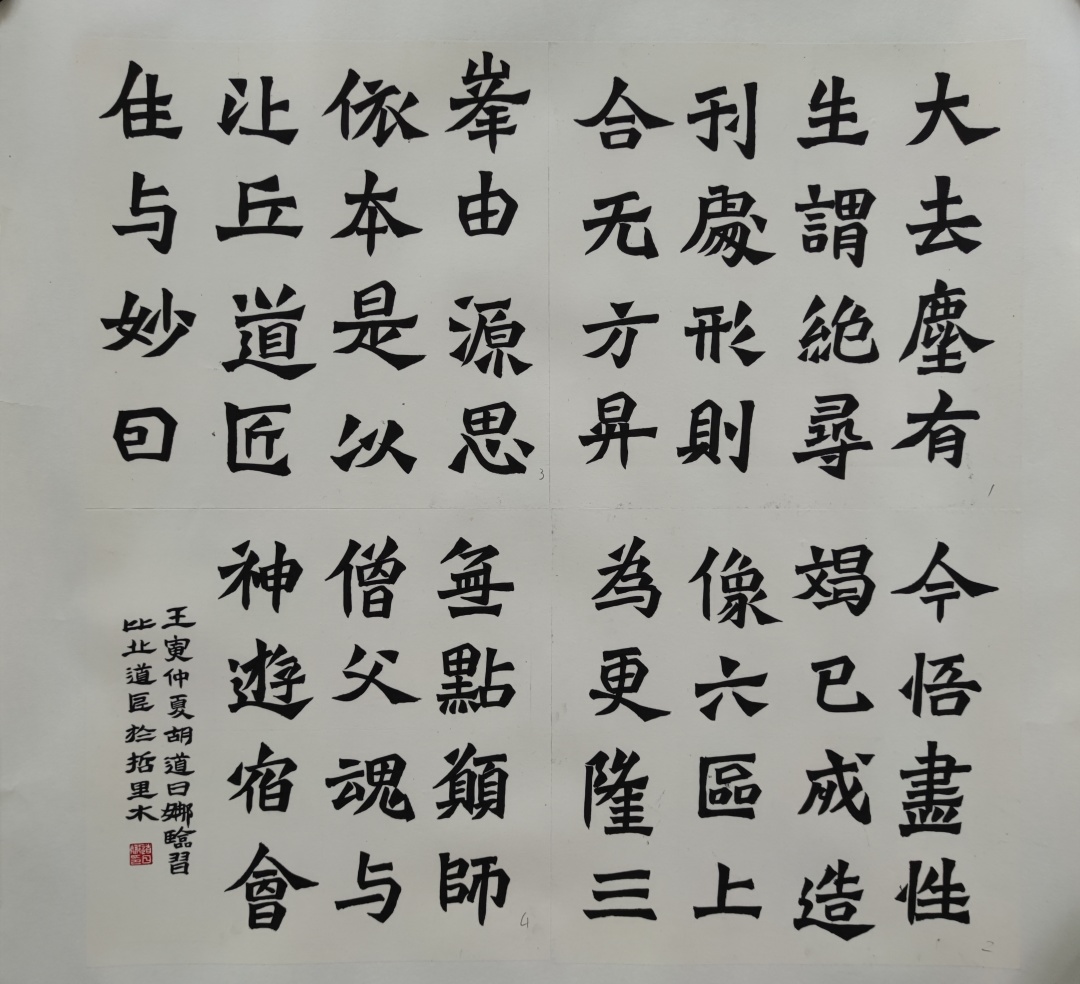 大去塵有
生謂絶尋
刊處形則
合无方昇
今悟盡性
竭已成造
像六區上
為更隆三
峯由源思
依本是以
比丘道匠
住与妙曰
無點顛師
僧父魂与
神遊宿會
壬寅仲夏胡道日娜臨習
比丘道匠於哲里木
1
2
3
4